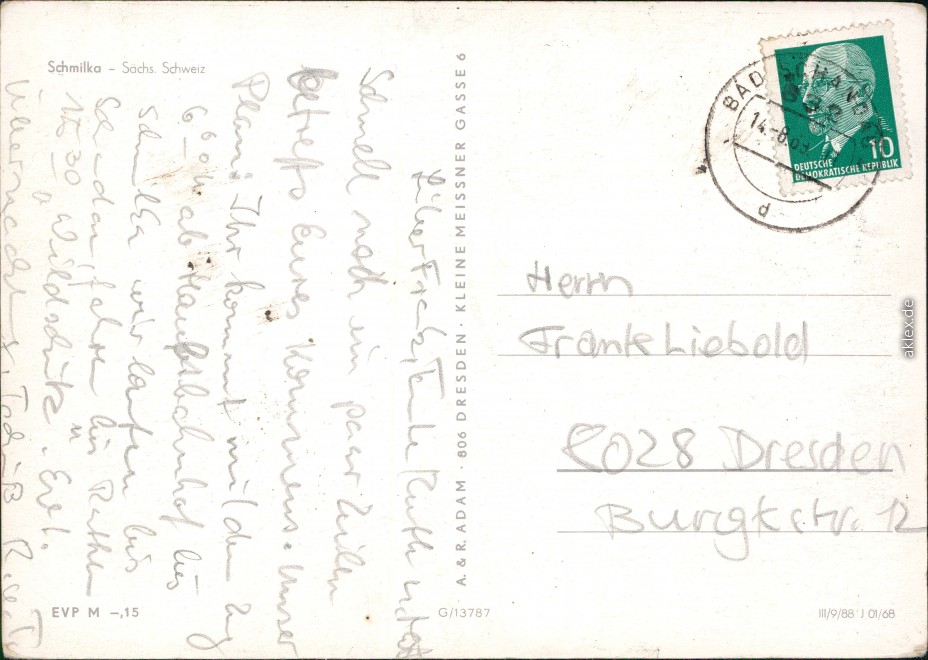 Schmilka – Sächs. Schweiz
Lieber Frank, Tante Ruth u.
Schnell noch ein paar Zeilen
betreffs Eures Kommens. Unser
Plan: Ihr kommt mit dem Zug
6 ab Hauptbahnhof bis
Schmilka wir laufen bis
dann fahren bis Rathen
30
EVP M –,15
A. & R. ADAM · 806 DRESDEN · KLEINE MEISSNER GASSE 6
G/13787
BAD SCHANDAU
d
10
DEUTSCHE
DEMOKRATISCHE REPUBLIK
Herrn
Frank Liebold
8028 Dresden
Burgkstr. 12
III/9/88 J 01/68
aklex.de